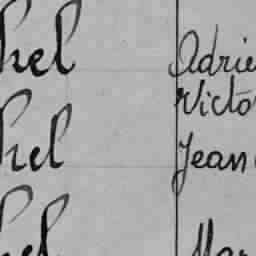 hel Adrie
Victo
hel Jean
hel Mar